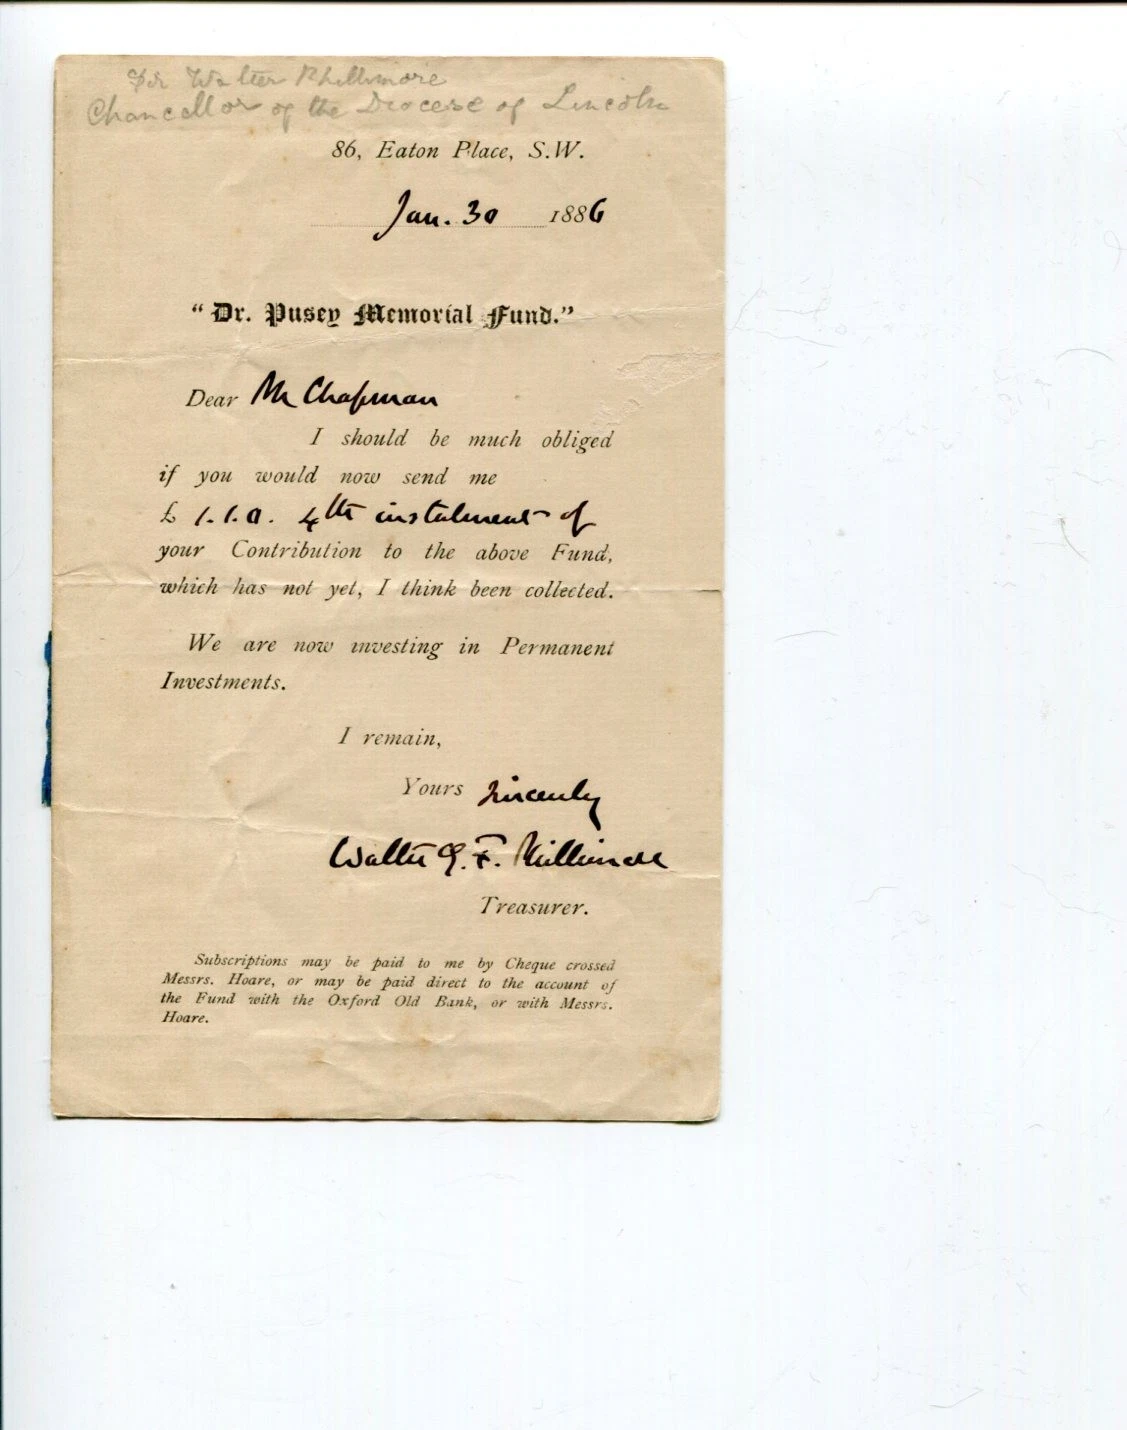 Sir Walter Phillimore
Chancellor of the Diocese of Lincoln
86, Eaton Place, S.W.
Jan. 30 1886
"Dr. Pusey Memorial Fund."
Dear Mr Chapman
I should be much obliged
if you would now send me
£ 1.1.0. 4th instalment of
your Contribution to the above Fund,
which has not yet, I think been collected.
We are now investing in Permanent
Investments.
I remain,
Yours sincerely
Walter G. F. Phillimore
Treasurer.
Subscriptions may be paid to me by Cheque crossed
Messrs. Hoare, or may be paid direct to the account of
the Fund with the Oxford Old Bank, or with Messrs.
Hoare.